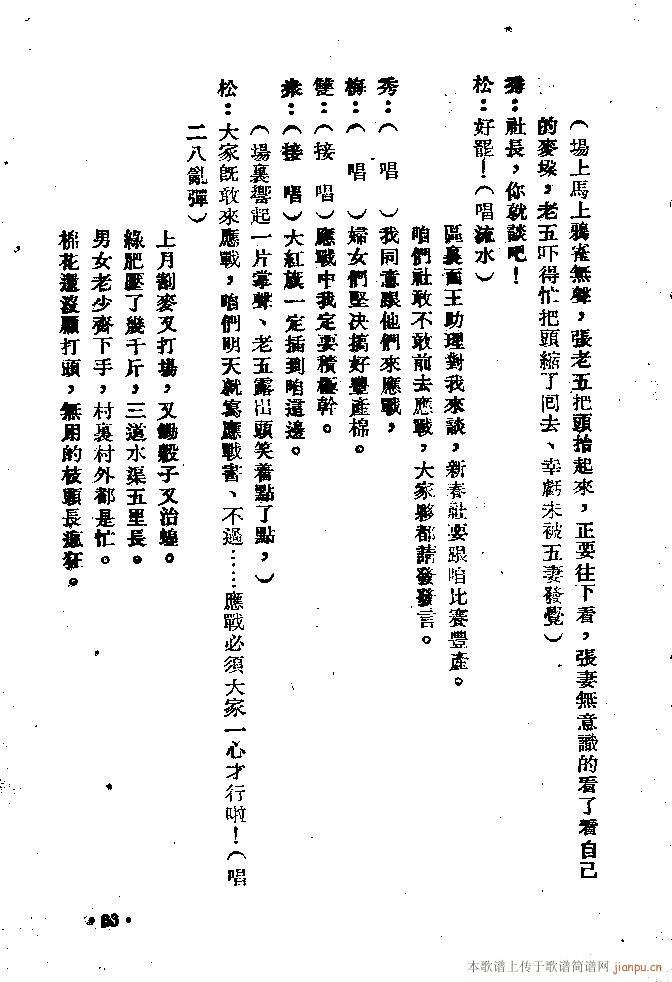 (場上馬上鴉雀無聲，張老五把頭抬起來，正要往下看，張妻無意識的看了看自己
的麥垛，老五吓得忙把頭縮了囘去、幸虧未被五妻發覺)
秀：社長，你就談吧！
松：好罷！(唱流水)
區裏面王助理對我來談，新春社要跟咱比賽豐產。
咱們社敢不敢前去應戰，大家夥都請發發言。
秀：(唱)我同意跟他們來應戰，
梅：(唱)婦女們堅決搞好豐產棉。
(接唱)應戰中我定要積極幹。
(接唱)大紅旗一定插到咱這邊。
(場裏響起一片掌聲、老五露出頭笑着點了點，)
松：大家旣敢來應戰，咱們明天就寫應戰書、不過……應戰必須大家一心才行啦！(唱
二八亂彈)
上月割麥又打場，又鋤穀子又治蝗。
綠肥壓了幾千斤，三道水渠五里長。
男女老少齊下手，村裏村外都是忙。
棉花還沒顧打頭，無用的枝頭長瘋狂。
·83·
本歌谱上传于歌谱简谱网
jianpu.cn